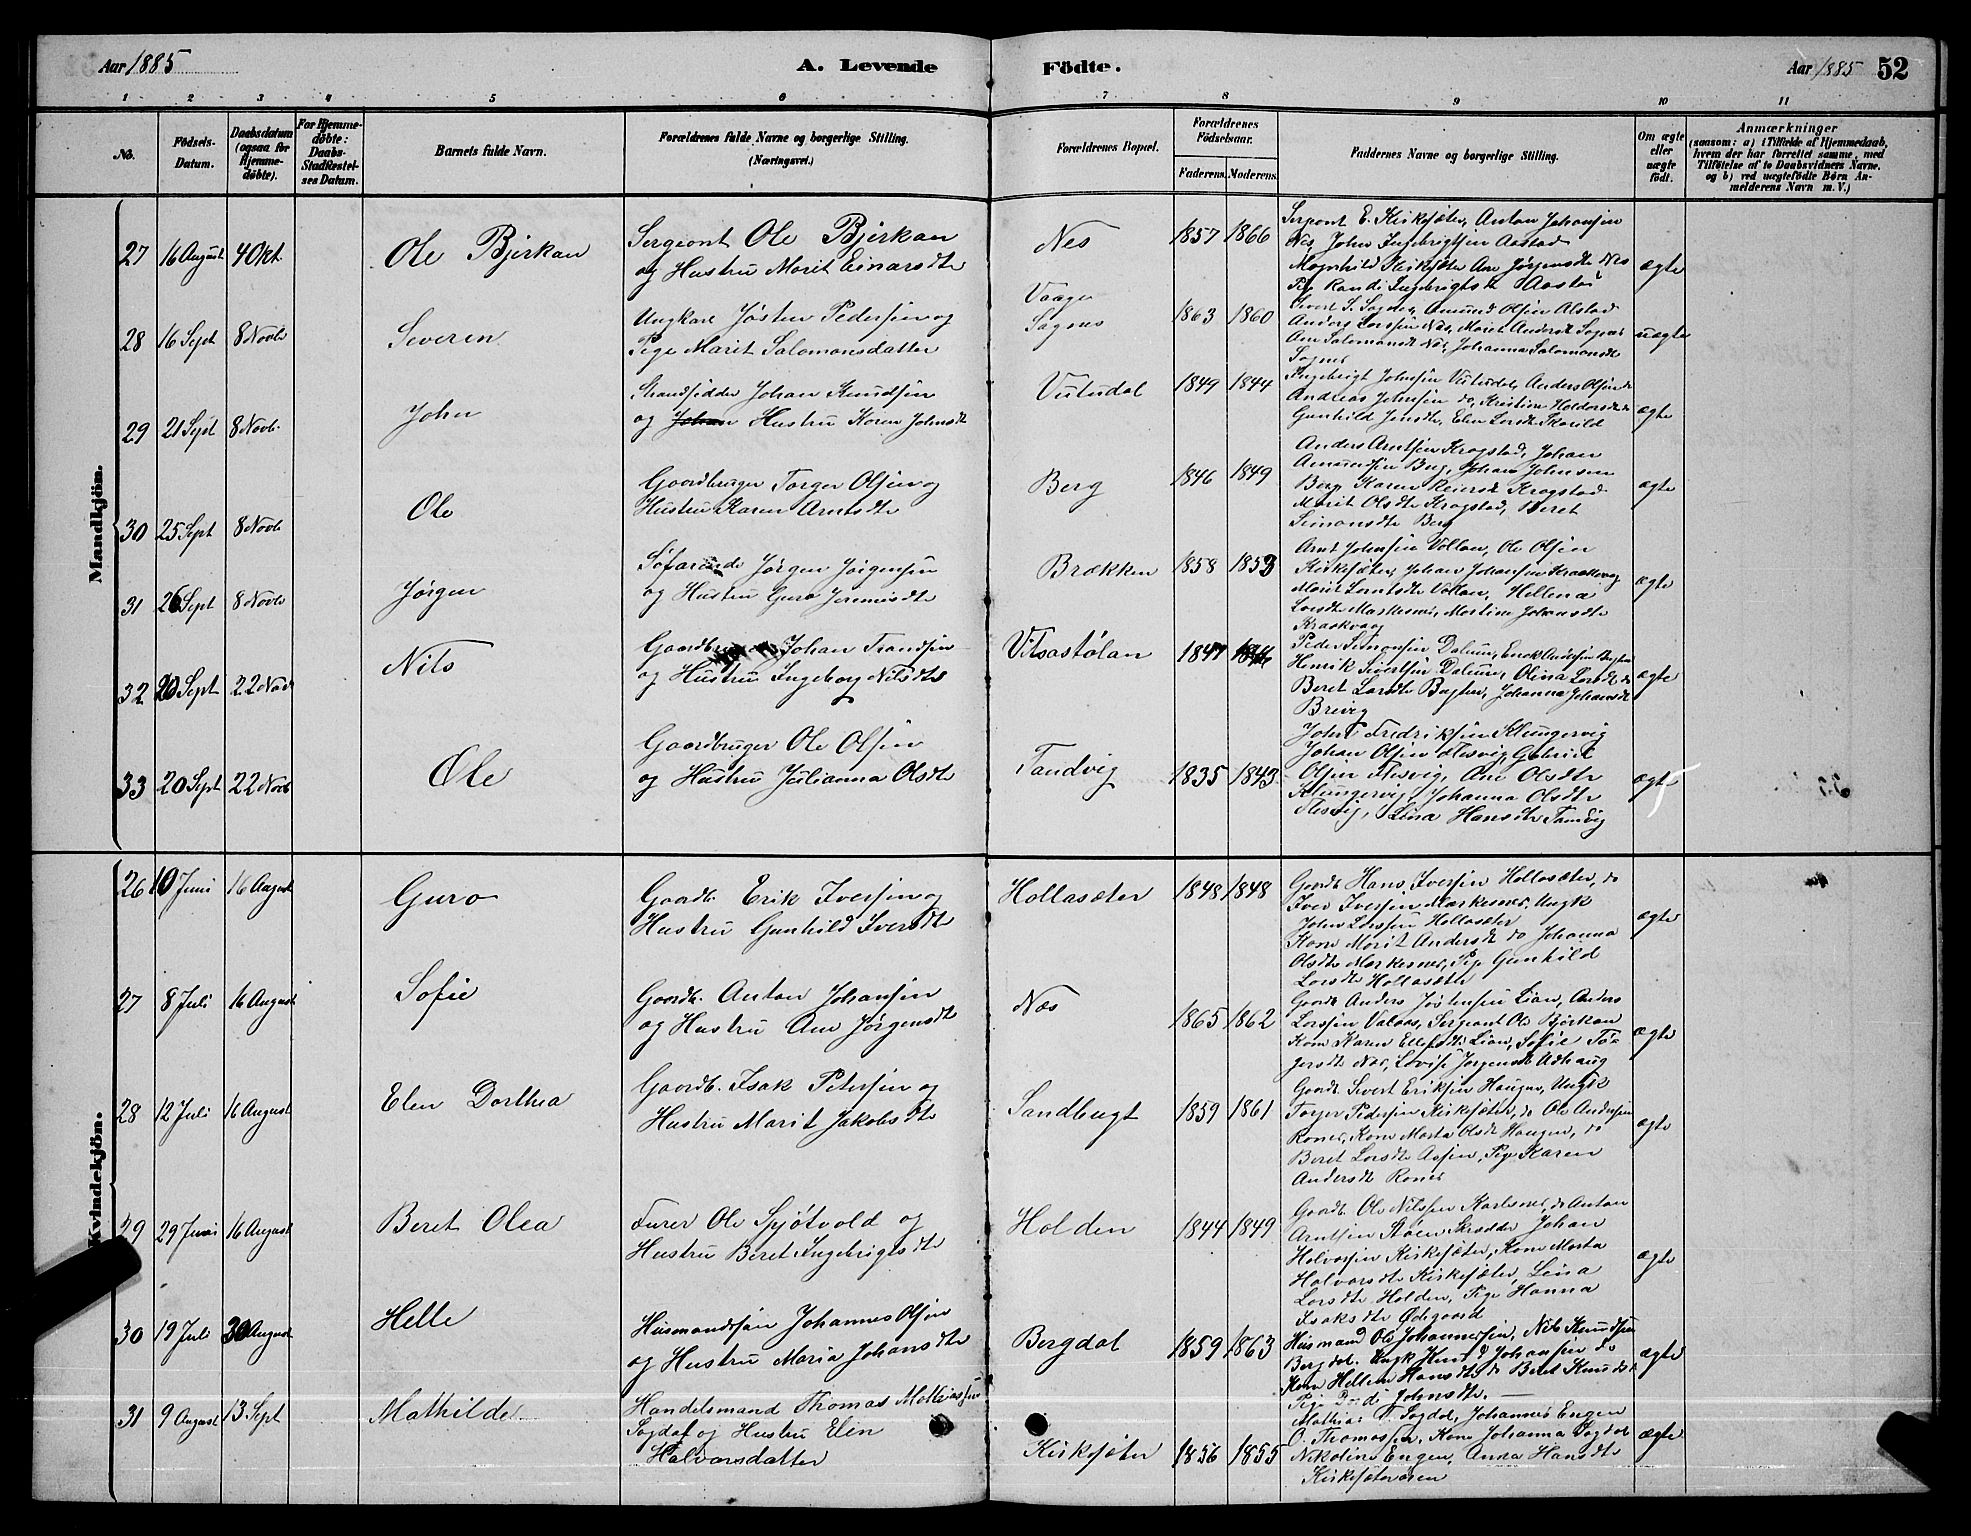 Aar 1885
A. Levende Födte.
Aar 1885 52
1 2 3 4 5 6 7 8 9 10 11
No.
Födsels-Datum.
Daabsdatum (ogsaa for Hjemme-döbte).
For Hjemme-döbte: Daabs-Stadfæstel-ses Datum.
Barnets fulde Navn.
Forældrenes fulde Navne og borgerlige Stilling. (Næringsvei.)
Forældrenes Bopæl.
Forældrenes Födselsaar.
Faderens. Moderens.
Faddernes Navne og borgerlige Stilling.
Om ægte eller uægte födt.
Anmærkninger
(saasom: a) i Tilfælde af Hjemmedaab, hvem der har forrettet samme, med Tilföielse af to Daabsvidners Navne, og b) ved uægtefödte Börn Anmelderens Navn m. V.)
Mandkjön.
27 16 August 4 Okt. Ole Bjerkan
Sergeant Ole Bjerkan
og Hustru Marit Einarsdtr
Nes 1857 1866
Sergeant E. Kirksæter, Anton Johansen
Nes, John Ingebrigtsen Aastad
Magnhild Kirksæter Ane Jørgensdtr Nes
Pige Randi Ingebrigtsdtr
ægte
28 16 Sept 8 Novb Severen
Ungkarl Jøsten Pedersen og
Pige Marit Salomonsdatter
Sognes 1863 1860
Anders Larssen Næs, Marit Andersdt Sognes
Ane Salomonsdt Næs, Johanna Salomonsdt
Sognes
uægte
29 21 Sept 8 Novb. John
Strandsidder Johan Knudsen
og Hustru Karen Johnsdt
Vutudal 1849 1844
Ingebrigt Johnsen Vutudal, Anders Olsen do
Andreas Johnsen do, Kristine Haldorsdt do
Gunhild Jensdtr, Elen Larsdt Skarild
ægte
30 25 Sept 8 Novb Ole
Gaardbruger Torger Olsen og
Hustru Karen Arntsdtr
Berg 1846 1849
Anders Arntsen Krogstad, Johan
Amundsen Berg, Johan Johnsen
Berg Karen Reiersdt Krogstad
Marit Olsdtr Krogstad, Beret
Simonsdtr Berg
ægte
31 26 Sept 8 Novb Jørgen
Søfarende Jørgen Jørgensen
og Hustru Guro Jeremisdtr
Brækken 1858 1853
Arnt Johnsen Vollan, Ole Olsen
Kirksæter, Johan Johansen Kraakvag
Marit Larntsdtr Vollan, Hellena
Larsdtr Maskesnes, Martine Johansdtr
Kraakvaag
ægte
32 20 Sept 22 Novb Nils
Johan Trondsen
og Hustru Ingeborg Nilsdtr
Vitsastølan 1847
Peder Simonsen Dalum, Erick Andersen
Henrik Sivertsen Dalum, Olina Larsdt do
Beret Larsdtr Bugten, Johanna Johansdt
Breivig
ægte
33 20 Sept 22 Novb Ole
Gaardbruger Ole Olsen
og Hustru Julianna Olsdtr
Tandvig 1835 1843
John Fredriksen Klungervig
Johan Olsen Flesvig, Gabriel
Olsen Flesvig, Ane Olsdtr
Klungervig, Johanna Olsdtr
Flesvig, Lena Hansdtr Tanvig
ægte
Kvindekjön.
26 10 Juni 16 August Guro
Gaardb. Erik Iversen og
Hustru Gunhild Iversdtr
Hollasæter 1848 1848
Gaardb Hans Iversen Hollasæter, do
Iver Iversen Mærkesnes, Ungk
John Larssen Hollasæter
Kone Marit Andersdt do Johanna
Olsdtr Mærkesnes, Pige Gunhild
Larsdtr Hollasæter
ægte
27 8 Juli 16 August Sofie
Gaardb. Anton Johansen
og Hustru Ane Jørgensdtr
Næs 1865 1862
Gaardb Anders Jøstensen Lian, Anders
Larssen Valaas, Sergeant Ole Bjørkan
Kone Karen Ellefsdt Lian, Sofie
Næs, Lovise Jørgensdt Adhaug
ægte
28 12 Juli 16 August Elen Dorthea
Gaardb. Isak Petersen og
Hustru Marit Jakobsdtr
Sandbugt 1859 1861
Gaardb Sivert Eriksen Haugen, Ungk
Torger Pedersen Kirksæter, do Ole Andersen
Rones, Kone Marta Olsdt Haugen, do
Beret Larsdtr Aspen, Pige Karen
Andersdt Rones
ægte
29 29 Juni 16 August Beret Olea
Furer Ole Spjøtvold og
Hustru Beret Ingebrigtsdtr
Holden 1844 1849
Gaardb Ole Nilssen Karlsnes, do Anton
Arntsen Støen Skrædder Johan
Halvorsen Kirksæter, Kone Marta
Halvorsdtr Kirksæter, Lena
Larsdtr Holden, Pige Hanna
Isaksdtr Ødegaard
ægte
30 19 Juli 30 August Helle
Husmandssøn Johannes Olsen
og Hustru Maria Johansdtr
Bergdal 1859 1863
Husmand Ole Johannessen, Nils Knudsen
Bergdal. Ungk Knud Johansen do
Kone Hellene Hansdtr do Beret Knudsdt
Johnsdtr.
ægte
31 9 August 13 Sept Mathilde
Handelsmand Thomas Mathiassen
Sogdal og Hustru Elen
Halvorsdatter
Kirksæter 1856 1855
Mathias Sogdal, Johannes Engen
O. Thomassen, Kone Johanna Sogdal
Nikoline Engen, Anna Hansdtr
Kirksæterøren
ægte